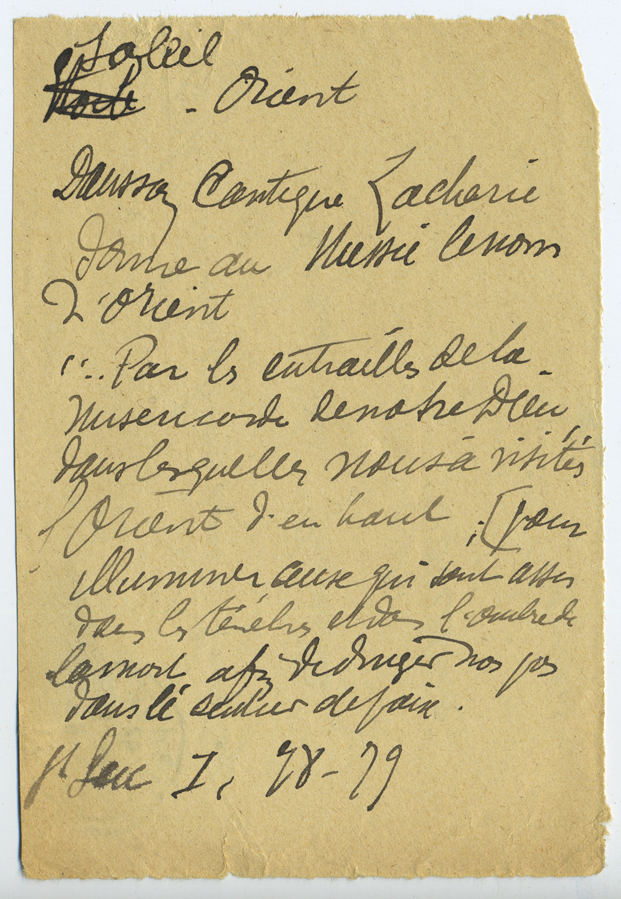 Soleil
- Orient
Dans son Cantique Zacharie
donne au Messie le nom
d'Orient
"... Par les entrailles de la
misericorde de notre Dieu,
dans lesquelles nous a visités
l'Orient d'en haut, [pour
illuminer ceux qui sont assis
dans les ténèbres et dans l'ombre de
la mort afin de diriger nos pas
dans le sentier de paix.
St Luc I, 78-79